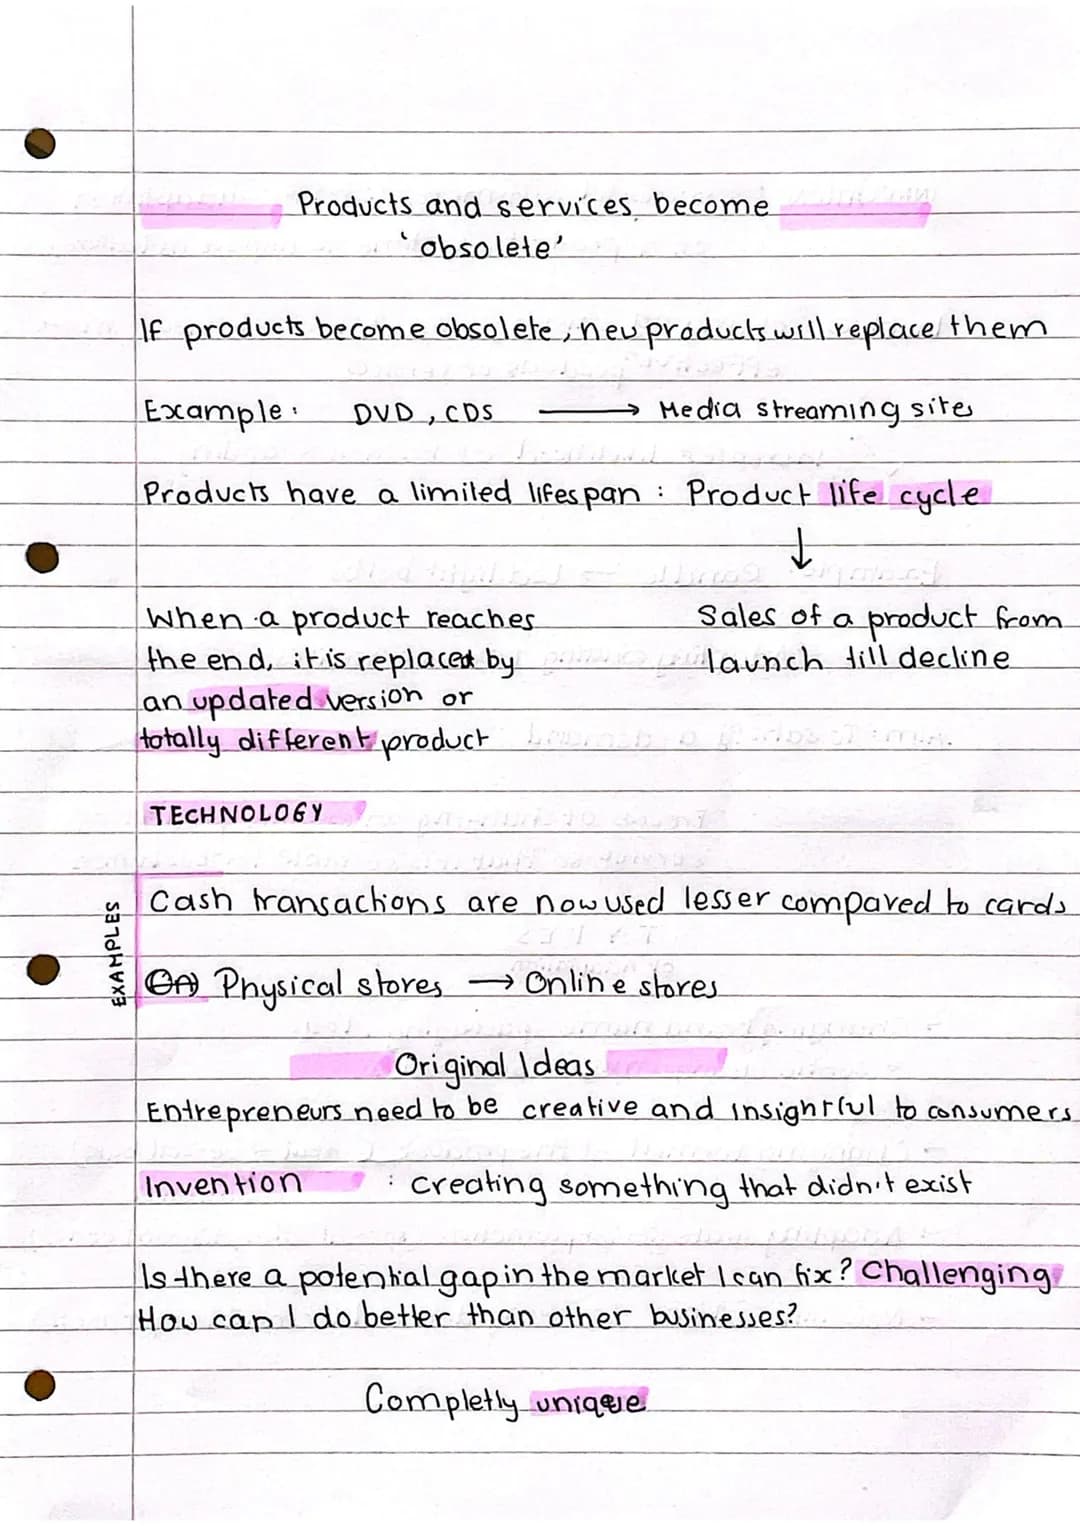 Products and services become
'obsolete'
If products become obsolete, new products will replace them
Example: DVD, CDS → Media streaming sites
Products have a limited lifespan: Product life cycle
↓
When a product reaches
the end, it is replaced by
an updated version or
totally different product
Sales of a product from
launch till decline
TECHNOLOGY
EXAMPLES
Cash transactions are now used lesser compared to cards
Physical stores → Online stores
Original Ideas
Entrepreneurs need to be creative and insightful to consumers
Invention : creating something that didn't exist
Is there a potential gap in the market I can fix? Challenging
How can I do better than other businesses?
Completly unique